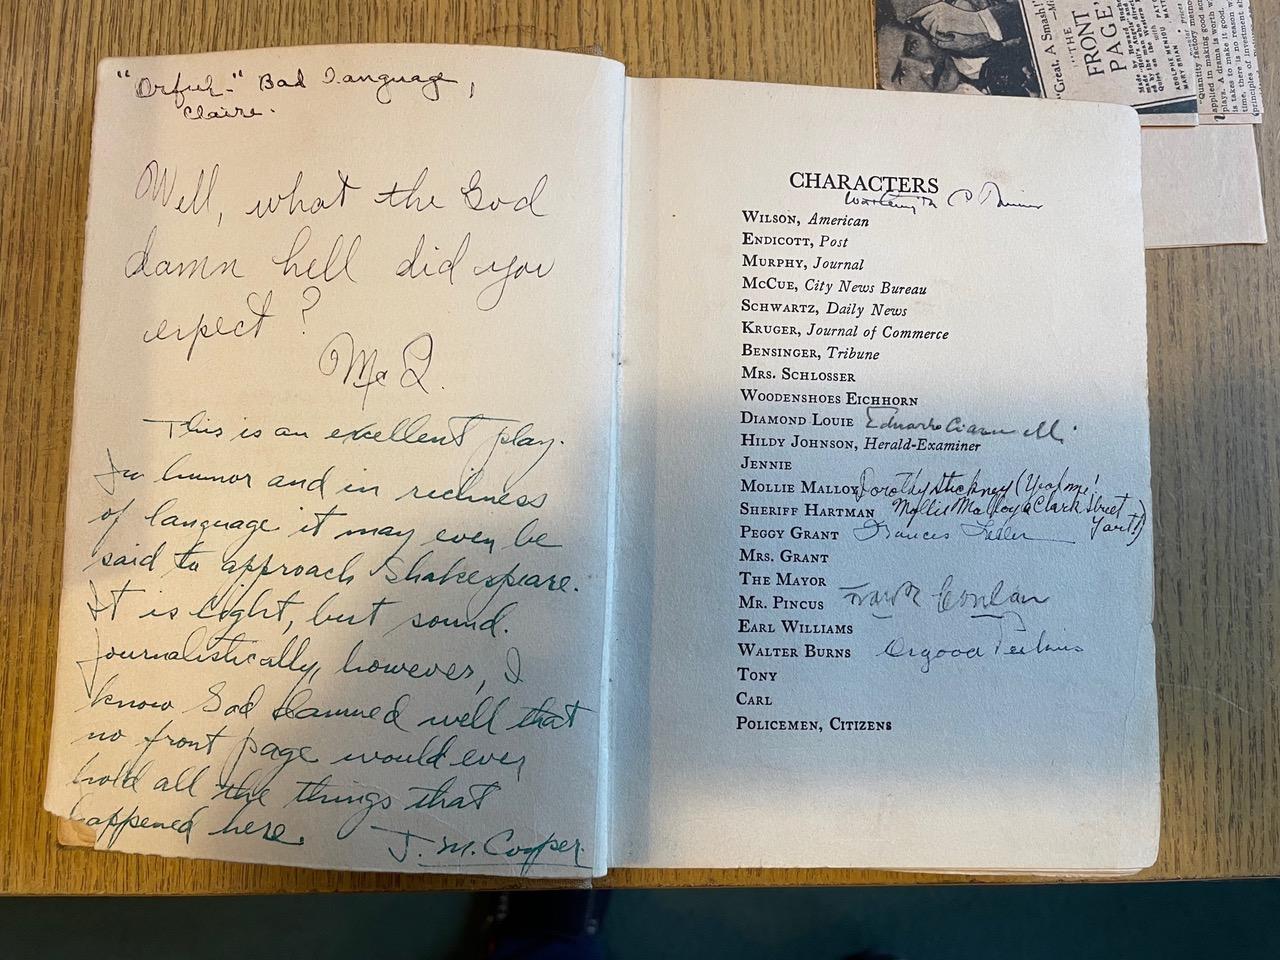 "Orful" Bad Language,
Claire.
Well, what the God
damn hell did you
expect?
McQ.
This is an excellent play.
In humor and in richness
of language it may even be
said to approach Shakespeare.
It is light, but sound.
Journalistically, however, I
know God damned well that
no front page would ever
hold all the things that
happened here.
J. M. Cooper.
CHARACTERS
WILSON, American
ENDICOTT, Post
MURPHY, Journal
MCCUE, City News Bureau
SCHWARTZ, Daily News
KRUGER, Journal of Commerce
BENSINGER, Tribune
MRS. SCHLOSSER
WOODENSHOES EICHHORN
DIAMOND LOUIE Eduardo Ciannelli
HILDY JOHNSON, Herald-Examiner
JENNIE
MOLLIE MALLOY Dorothy Stickney (Yealme!
SHERIFF HARTMAN Mollie Malloy a Clark Street
PEGGY GRANT Frances Fuller
MRS. GRANT
THE MAYOR
MR. PINCUS Frank Conlan
EARL WILLIAMS
WALTER BURNS Osgood Perkins
TONY
CARL
POLICEMEN, CITIZENS
"Great, A Smash!"
"THE
FRONT
PAGE"
ADOLPHE MENJOU
MARY BRIAN
"Quantity factory
applied in making good
plays. A drama is worth
is takes to make it good.
time, there is no reason
principles of investment